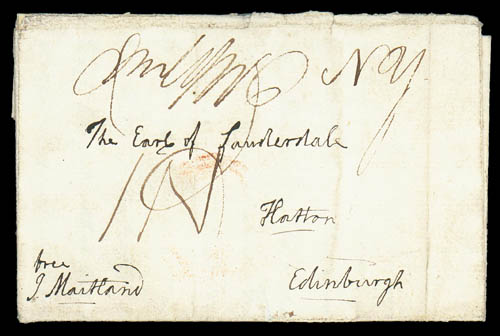 NY
The Earl of Lauderdale
Hatton
Edinburgh
free
J. Maitland